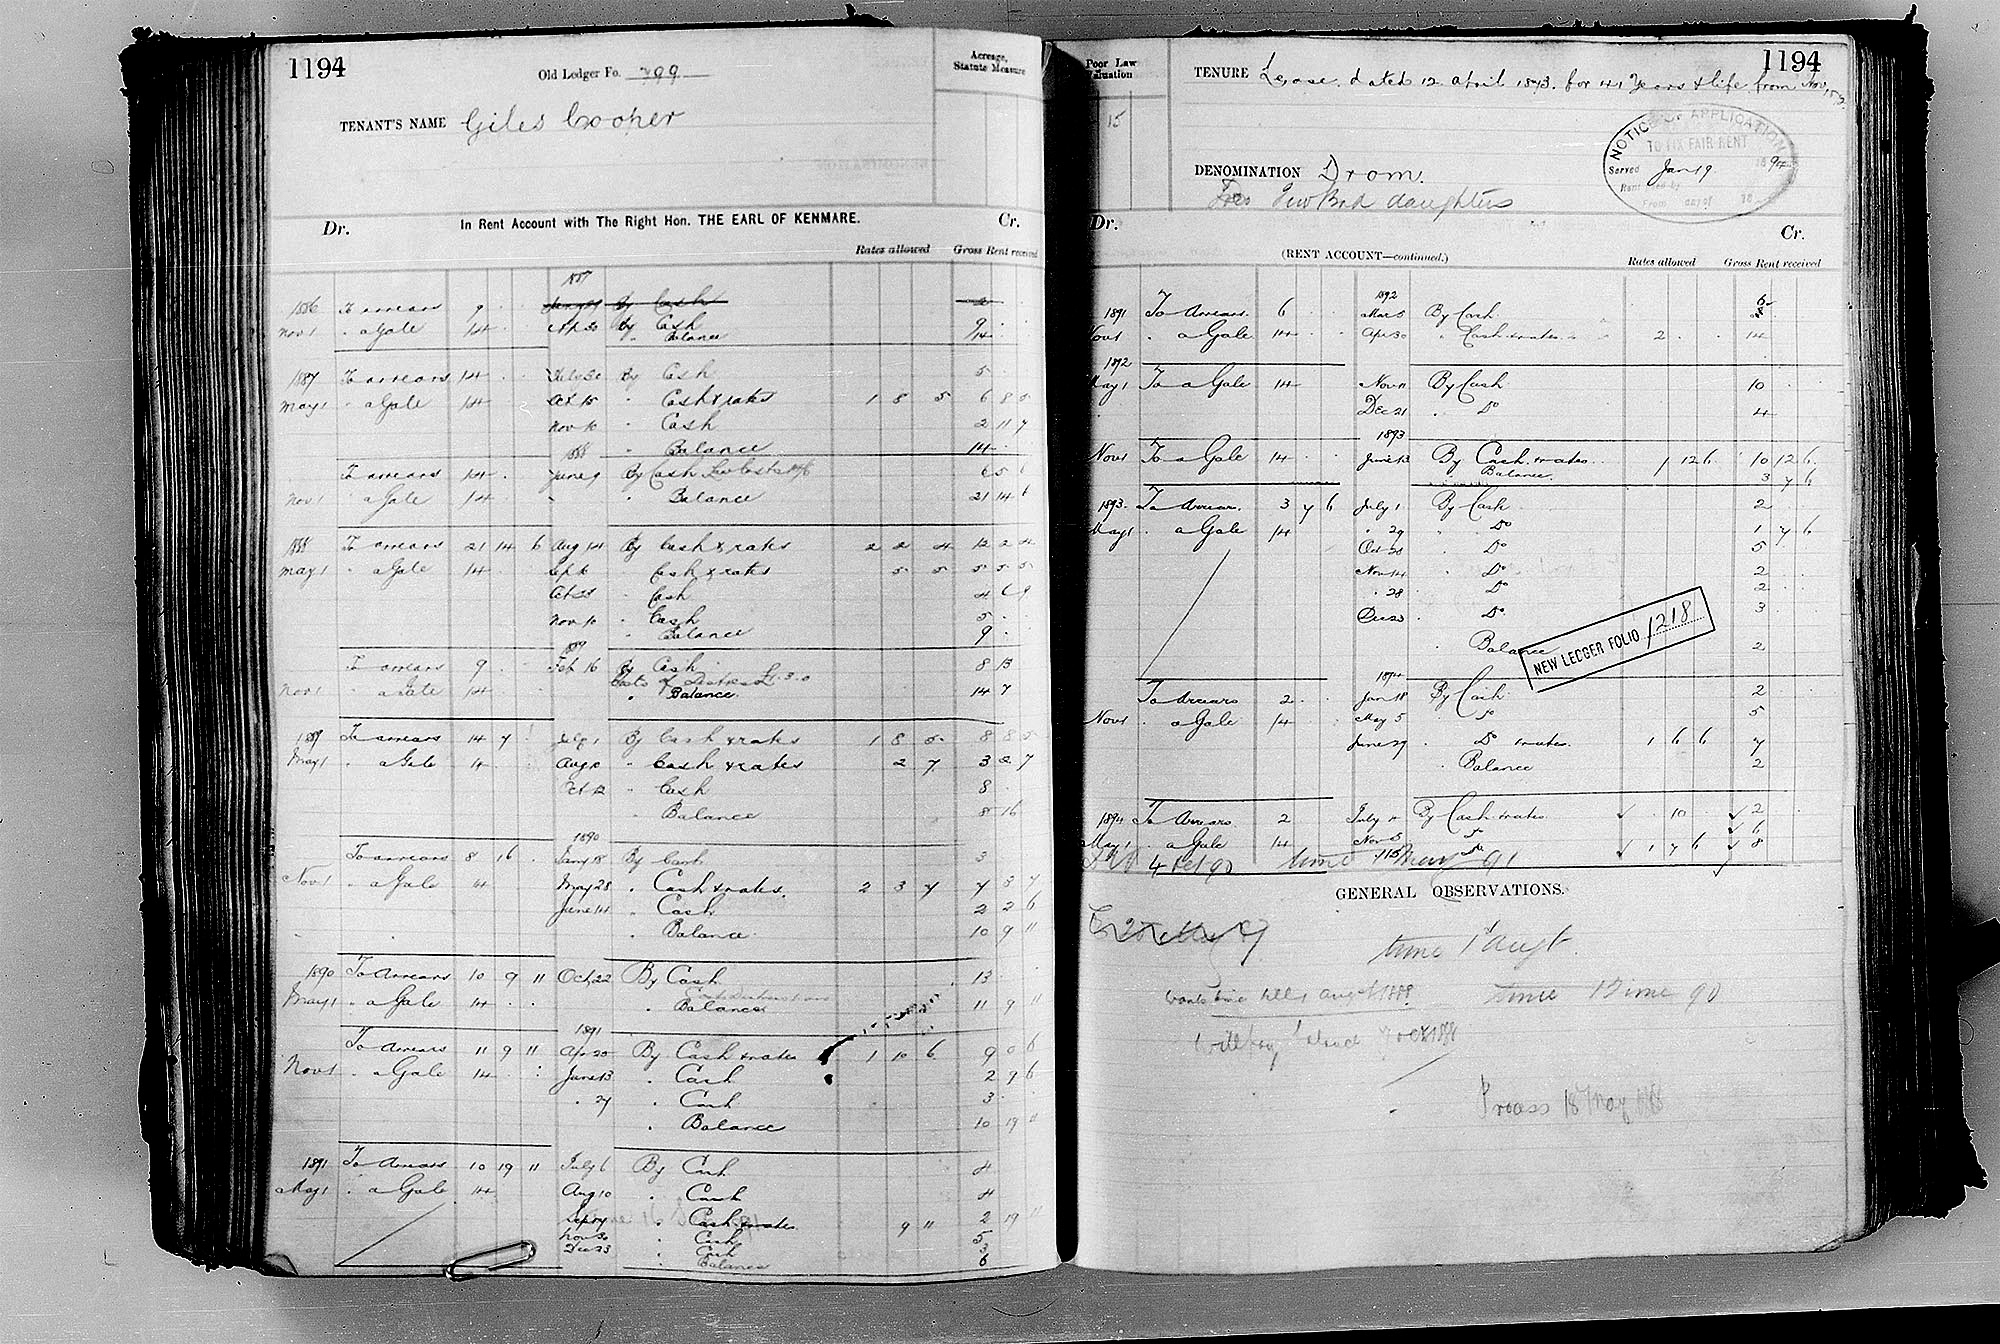 1194
Old Ledger Fo. 799
Acreage, Statute Measure
TENANT'S NAME Giles Cooper
Dr. In Rent Account with The Right Hon. THE EARL OF KENMARE. Cr.
Rates allowed Gross Rent received
1887
1886 To arrears 9 . . By Cash
Nov 1 " a Gale 14 . . Apr 30 By Cash 9 . .
" Balance 14 .
1887 To arrears 14 . By Cash 5
May 1 " a Gale 14 . Oct 15 " Cash & rates 1 8 5 6 8 5
Nov 10 " Cash 2 11 7
" Balance 14
1888
To arrears 14 . June 9 By Cash 6 5 6
Nov 1 " a Gale 14 " Balance 21 14 6
1888 To arrears 21 14 6 Aug 14 By Cash & rates 2 2 4 12 2 4
May 1 " a Gale 14 Sept 6 " Cash & rates 5 5 5 5 5
Oct 23 " Cash 4 6 9
Nov 10 " Cash 5 . .
" Balance 9 .
1889
To arrears 9 . . Feb 16 By Cash 8 13
Costs of Distress £1.3.0
Nov 1 " a Gale 14 " Balance 14 7
1889 To arrears 14 7 July 1 By Cash & rates 1 8 5 8 8 5
May 1 " a Gale 14 Aug 10 " Cash & rates 2 7 3 2 7
Oct 12 " Cash 8 .
" Balance 8 16
1890
To arrears 8 16 . Jany 18 By Cash 3
Nov 1 " a Gale 14 May 28 " Cash & rates. 2 3 7 7 3 7
June 14 " Cash 2 2 6
" Balance 10 9 11
1890 To Arrears 10 9 11 Oct 22 By Cash 13 . .
May 1 " a Gale 14 . . " Balance 11 9 11
1891
To Arrears 11 9 11 Apr 20 By Cash & rates 1 10 6 9 0 6
Nov 1 " a Gale 14 . . June 13 " Cash 2 9 6
" 27 " Cash 3 .
" Balance 10 19 11
1891 To Arrears 10 19 11 July 6 By Cash 4
May 1 " a Gale 14 Aug 10 " Cash 4
" Cash & rates 9 11 2 19 11
Nov 30 " Cash 5
Dec 23 " Cash 3
" Balance 6
1194
Poor Law Valuation
15
TENURE Lease dated 12 April 1873. for 41 Years & life from Nov
NOTICE OF APPLICATION
TO FIX FAIR RENT
Served Jan 19 1894
Rent fixed by
From day of 18
DENOMINATION Drom.
daughters
Dr. Cr.
(RENT ACCOUNT—continued.) Rates allowed Gross Rent received
1892
1891 To Arrears 6 . . Mar 5 By Cash 6
Nov 1 " a Gale 14 . . Apr 30 " Cash & rates 2 . . 14
1892
May 1 To a Gale 14 Nov 11 By Cash 10 . .
Dec 21 " Do 4
1893
Nov 1 To a Gale 14 . . June 13 By Cash & rates 1 12 6 10 12 6
" Balance 3 7 6
1893 To Arrears 3 7 6 July 1 By Cash 2 . .
May 1 " a Gale 14 " 29 " Do 1 7 6
Oct 28 " Do 5
Nov 14 " Do 2 . .
" 28 " Do 2 . .
Dec 23 " Do 3
" Balance 2
NEW LEDGER FOLIO 1218
1894
To Arrears 2 . Jan 18 By Cash 2 .
Nov 1 " a Gale 14 . May 5 " Do 5
June 29 " Do & rates 1 6 6 7
" Balance 2
1894 To Arrears 2 July By Cash & rates 10 . 2
May 1 " a Gale 14 Nov 5 " Do 6
" Do 1 7 6 8
4 Oct 90 time May 91
GENERAL OBSERVATIONS.
time 1st Augt
wants time till 1 Augst 1888
time 1 June 90
Process 18 May 1888